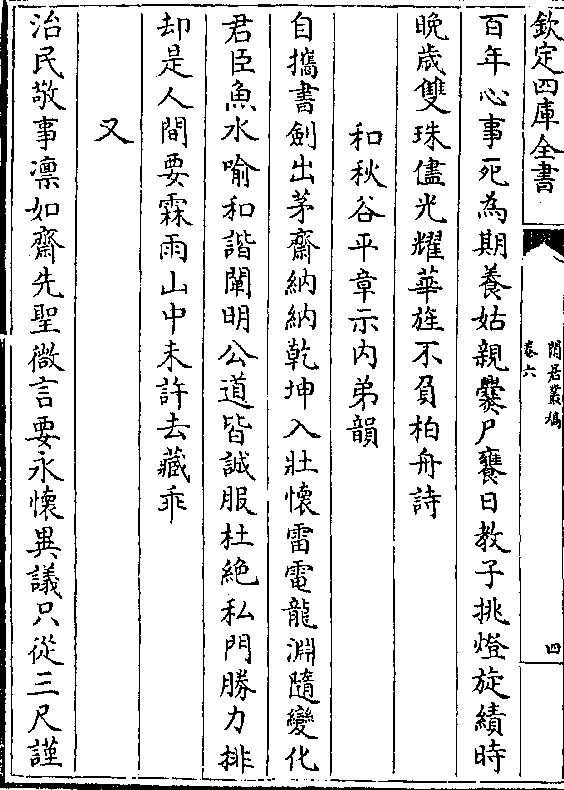 欽定四庫全書
閒居叢稿
卷六
四
百年心事死為期養姑親爨尸饔日教子挑燈旋績時
晩歳雙珠儘光耀華旌不負柏舟詩
和秋谷平章示内弟韻
自攜書劍出茅齋納納乾坤入壯懷雷電龍淵隨變化
君臣魚水喻和諧闡明公道皆誠服杜絶私門勝力排
却是人間要霖雨山中未許去藏乖
又
治民敬事凛如齋先聖微言要永懷異議只從三尺謹